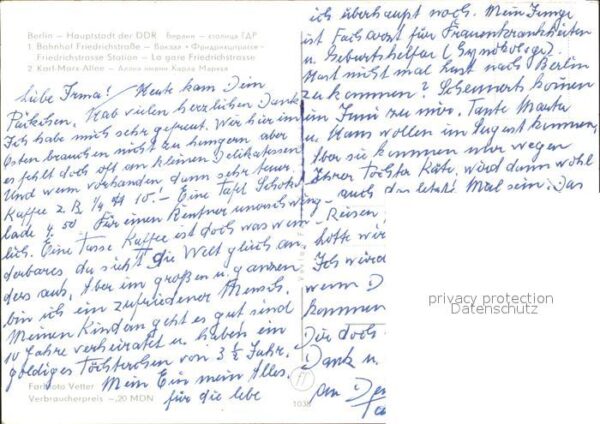 Berlin – Hauptstadt der DDR Берлин – столица ГДР
1. Bahnhof Friedrichstraße – Вокзал «Фридрихштрассе»
Friedrichstrasse Station – La gare Friedrichstrasse
2. Karl-Marx-Allee – Аллея имени Карла Маркса
Liebe Irma! Heute kam Dein
Päkchen. Hab vielen herzlichen Dank
Ich habe mich sehr gefreut. Wir hier im
Osten brauchen nicht zu hungern aber
es fehlt doch oft an kleinen Delikatessen
Und wenn vorhanden dann sehr teuer
Kaffee z. B. 1/4 10.- Eine Tafel Schoko
lade 4.50 Für einen Rentner unerschwing-
lich. Eine Tasse Kaffee ist doch was wun-
derbares du siehst die Welt gleich an
ders aus. Aber im großen u. ganzen
bin ich ein zufriedener Mensch.
Meinen Kindern geht es gut sind
10 Jahre verheiratet u. haben ein
goldiges Töchterchen von 3 1/2 Jahr.
Mein Ein mein Alles.
für die lebe
Farbfoto Vetter
Verbraucherpreis –,20 MDN
1038
ich überhaupt noch. Mein Junge
ist Facharzt für Frauenkrankheiten
u. Geburtshelfer
Hast nicht mal Lust nach Berlin
zu kommen? können
im Juni zu mir. Tante Martha
u. Hans wollen im August kommen,
Aber sie kommen nur wegen
Ihrer Tochter Käte, wird dann wohl
auch das letzte Mal sein. Das
Reisen
hoffe wir
Ich würd
wenn D
kommen
Dir doch
Dank u.
an De
privacy protection
Datenschutz